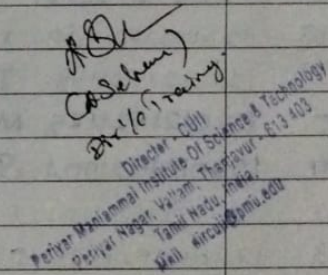 Dir i/c Training.
Director - CUII
Periyar Maniammai Institute Of Science & Technology
Periyar Nagar, Vallam, Thanjavur - 613 403
Tamil Nadu, India.
Mail